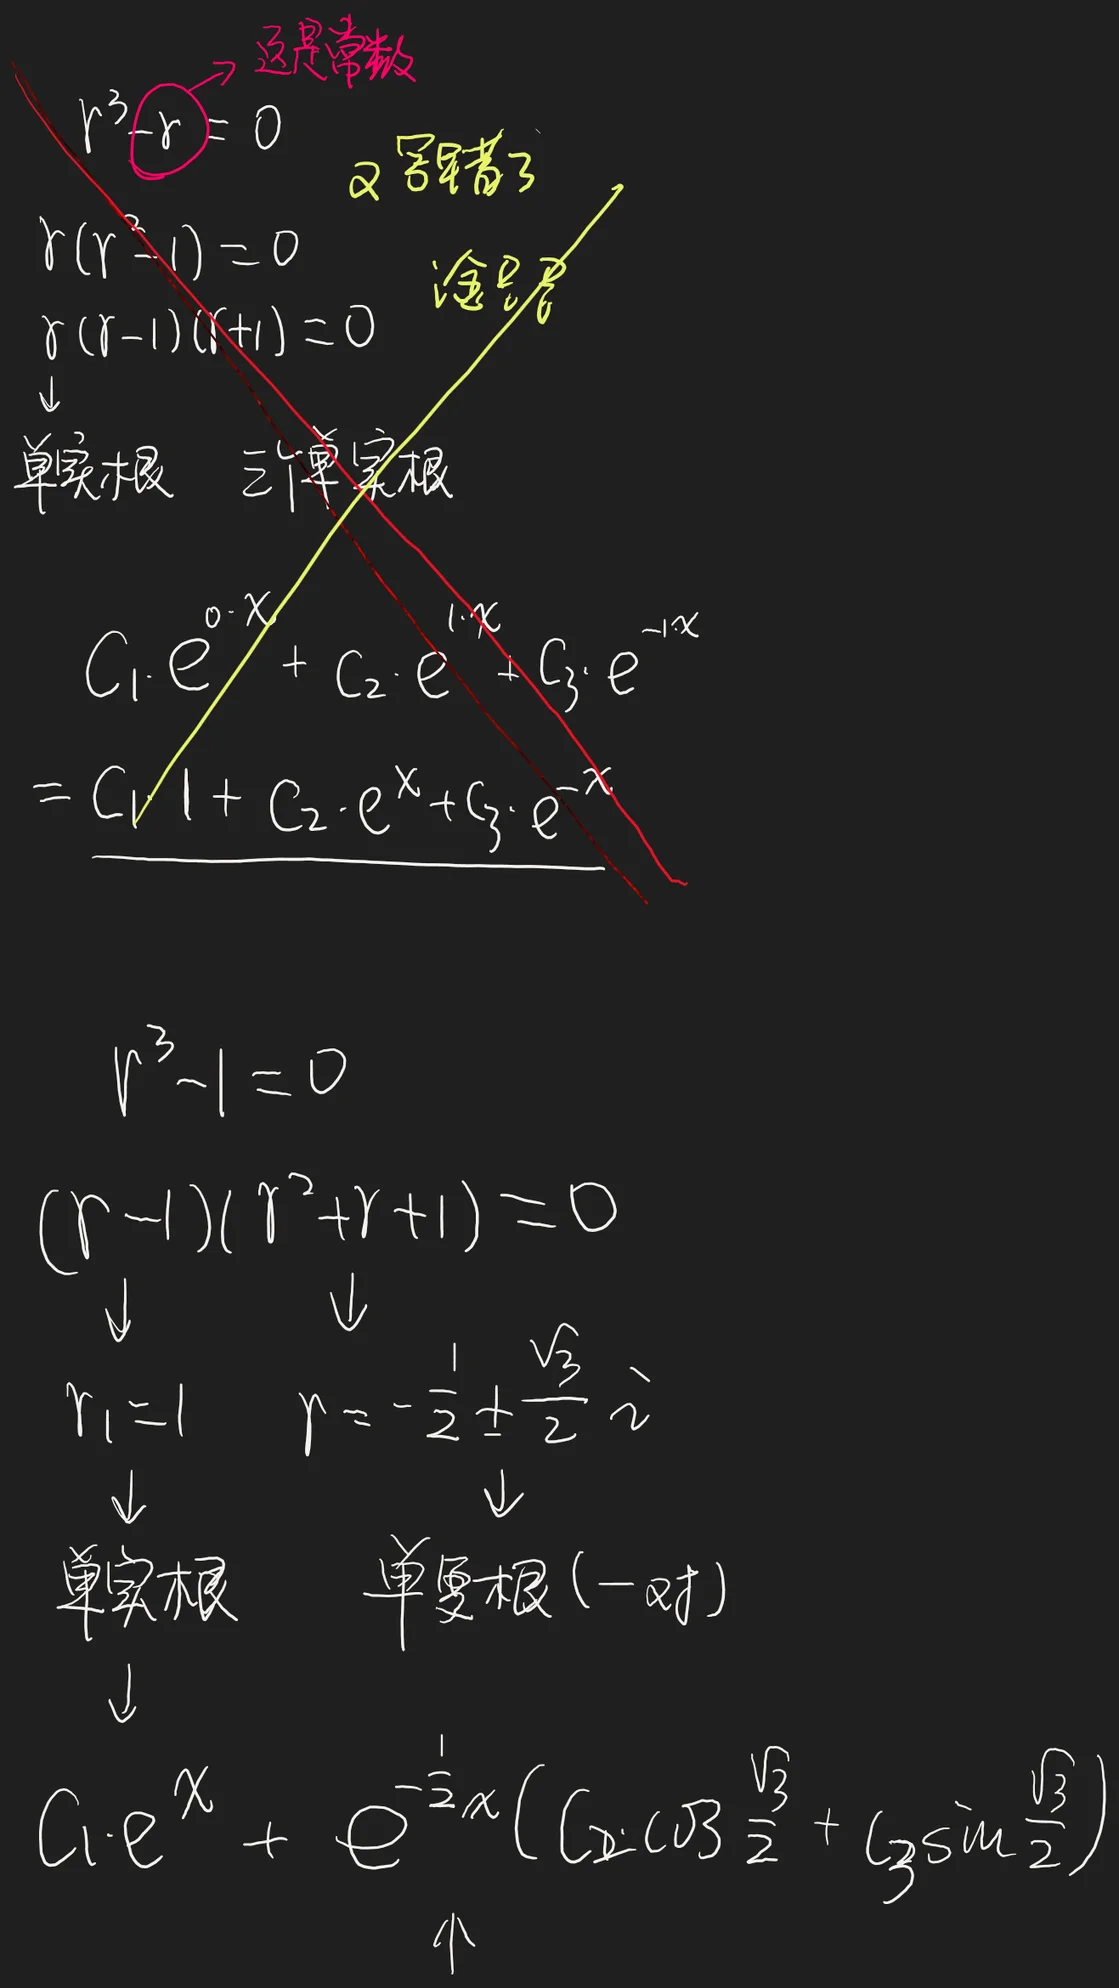 这是常数
r³-r=0
又写错了
r(r²-1)=0
r(r-1)(r+1)=0
↓
单实根 三个单实根
C₁·e^{0·x} + C₂·e^{1·x} + C₃·e^{-1·x}
= C₁·1 + C₂·e^x + C₃·e^{-x}
r³-1=0
(r-1)(r²+r+1)=0
↓ ↓
r₁=1 r=-\frac{1}{2}±\frac{√3}{2}i
↓ ↓
单实根 单复根(一对)
↓
C₁·e^x + e^{-\frac{1}{2}x}(C₂·cos\frac{√3}{2} + C₃sin\frac{√3}{2})
↑